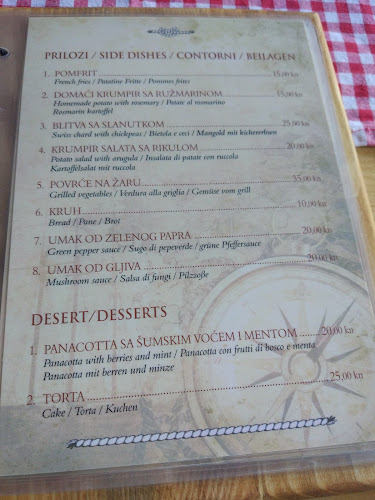 PRILOZI / SIDE DISHES / CONTORNI / BEILAGEN
1. POMFRIT 15,00 kn
French fries / Patatine Fritte / Pommes frites
2. DOMAĆI KRUMPIR SA RUŽMARINOM 15,00 kn
Homemade potato with rosemary / Patate al rosmarino
Rosmarin kartoffel
3. BLITVA SA SLANUTKOM 25,00 kn
Swiss chard with chickpeas / Bietola e ceci / Mangold mit kichererbsen
4. KRUMPIR SALATA SA RIKULOM 20,00 kn
Potato salad with arugula / Insalata di patate con ruccola
Kartoffelsalat mit ruccola
5. POVRĆE NA ŽARU 35,00 kn
Grilled vegetables / Verdura alla griglia / Gemüse vom grill
6. KRUH 10,00 kn
Bread / Pane / Brot
7. UMAK OD ZELENOG PAPRA 20,00 kn
Green pepper sauce / Sugo di pepeverde / grüne Pfeffersauce
8. UMAK OD GLJIVA 20,00 kn
Mushroom sauce / Salsa di funghi / Pilzsoße
DESERT/DESSERTS
1. PANACOTTA SA ŠUMSKIM VOĆEM I MENTOM 20,00 kn
Panacotta with berries and mint / Panacotta con frutti di bosco e menta
Panacotta mit berren und minze
2. TORTA 25,00 kn
Cake / Torta / Kuchen